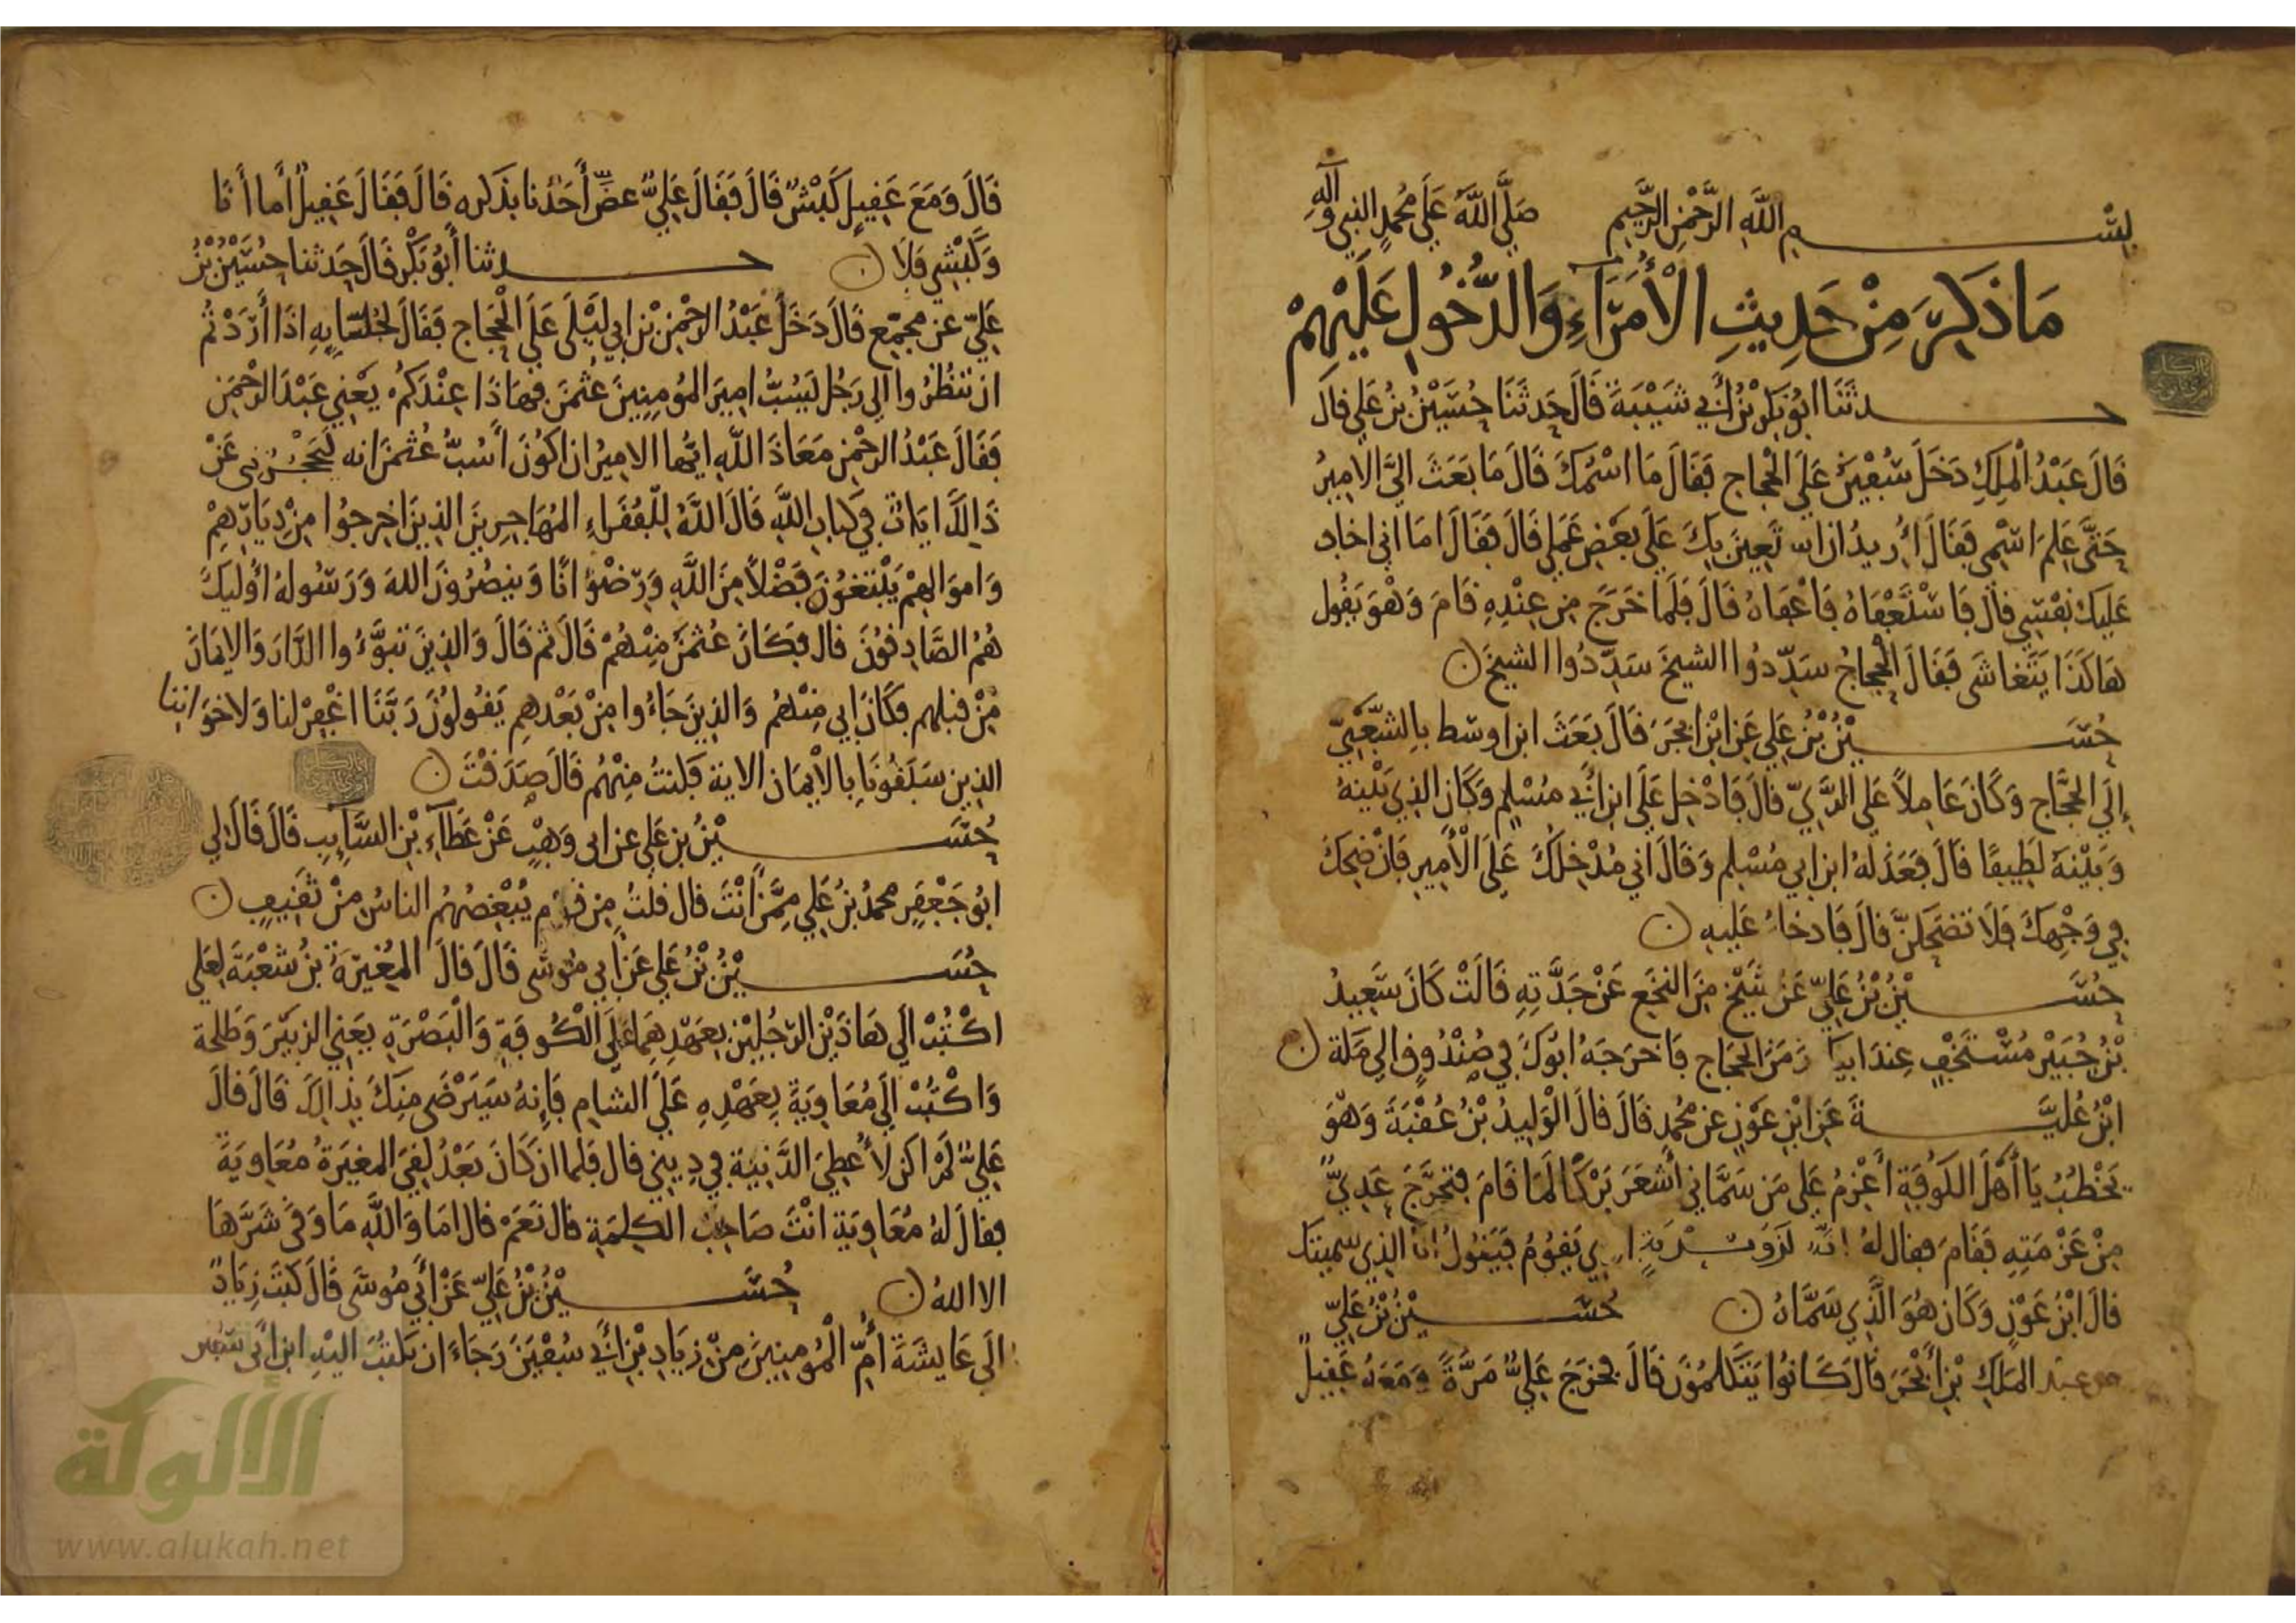 بِسْم اللَّهِ الرَّحْمنِ الرَّحِيمِ صَلَّى اللَّهُ عَلَى مُحَمدٍ النبي وآلِهِ
مَا ذُكِرَ مِنْ حَدِيثِ الْأُمَرَآءِ وَالدُّخُولِ عَلَيْهِمْ
حدثَنَا ابُو بَكرِ بْنُ أَبي شَيْبَةَ قَالَ حَدثَنَا حُسَيْنُ بنُ عَلي قالَ
قَالَ عَبْدُ الْمَلِكِ دَخَلَ شُفَيْرُ عَلَى الْحجاج فَقَالَ مَا اسْمُكَ قَالَ مَا بَعَثَ اليَّ الاميرُ
حَتَّى عَلِمَ اسْمِى فَقَالَ أُريدُ ان استَعِينَ بِكَ عَلَى بَعْضِ عَمَلِي قَالَ فَقَالَ امَا اني اخاف
عَلَيكَ نفْسِي قالَ فَاسْتَعْفَاهُ فَاعْفَاهُ قَالَ فَلَما خَرَجَ مِن عِنْدِهِ قَامَ وَهْوَ يَقُول
هَاكَذَا يَتَغاشَى فَقَالَ الْحجاجُ سَدِّدُوا الشيخَ سَدِّدُوا الشيخَ
حُسَيْنُ بْنُ عَلي عَنِ ابْنِ ابجَرَ قَالَ بَعَثَ ابن اوسَط بِالشَّعْبِيِّ
إِلَى الحَجَّاج وَكَانَ عَامِلاً عَلى الرَّيِّ قالَ فَادْخِلَ عَلَى ابن أَبي مُسْلِم وَكَانَ الذِي بَيْنهُ
وَبَيْنَهُ لَطِيفًا قَالَ فَعَذَلهُ ابن ابي مُسْلِم وَقَالَ اني مُدْخِلُكَ عَلَى الْأَمِيرِ فَانْ ضَحِكَ
فِي وَجْهِكَ فَلَا تضحَكنَّ قالَ فَادخلَ عَلَيهِ
حُسَيْنُ بْنُ عَلِيّ عَنْ شَيْخ مِنَ النخَع عَنْ جَدَّتِهِ قَالَتْ كَانَ سَعِيدُ
بْنُ جُبَيْر مُسْتَخْفٍ عِندَ ابيك زَمَنَ الحَجَاج فَاخرَجَهُ ابُوكَ فِي صُنْدُوقٍ الى مَكَة
ابْنُ عُلَيَّةَ عَنِ ابْنِ عَوْنٍ عن مُحمدٍ قَالَ قَالَ الْوَلِيدُ بْنُ عُقْبَةَ وَهْوَ
يَخْطُبُ يَا أَهْلَ الكوفَةِ أَعْزِمُ عَلى مَن سَمَّاني أَشْعَرَ بَرْكًا لَمَا قَامَ فتحَرَّجَ عَدِيٌّ
مِنْ عَزْمَتِهِ فَقَامَ فقال لهُ إنهُ لَذُو نَدْبَةٍ الذي يَقُومُ فَيَقُولُ انا الذِي سميتك
قالَ ابْنُ عَوْنٍ وَكَانَ هُوَ الَّذِي سَمَّاهُ حُسَيْنُ بْنُ عَلِيّ
عن عبْد المَلِكِ بْنِ أَبْجَرَ قَالَ كَانُوا يَتَكَلَّمُونَ قَالَ فخرَجَ عَلِيٌّ مَرَّةً وَمَعَهُ عَقِيلٌ
قَالَ وَمَعَ عَقِيلٍ كَبْشٌ قَالَ فَقَالَ عَلِيٌّ عضَّ أَحَدُنا بذكره قَالَ فَقَالَ عَقِيلٌ أَما أَنَا
وَكَبْشِي فَلَا حدثنا أَبُو بَكْر قَالَ حَدثنا حُسَيْنُ بْنُ
عَلِيّ عَن مجمِّع قَالَ دَخَلَ عَبْدُ الرحْمنِ بْنُ ابِي لَيْلَى عَلَى الْحَجاج فَقَالَ لجُلَسَايِهِ اذَا أَرَدْتُمْ
ان تَنظُرُوا الى رَجُل يَسُبُّ امِيرَ المُومِنِينَ عُثمنَ فهَاذَا عِنْدَكُمْ يَعْنِي عَبْدَ الرحْمَنِ
فَقَالَ عَبْدُ الرحْمن مَعَاذَ اللَّهِ ايُّها الامِيرُ ان اكُونَ أَسُبُّ عُثمنَ انه لَيَحْجُزُنِي عَنْ
ذَالِكَ ايَات فِي كِتَابِ اللَّهِ قَالَ اللَّهُ لِلْفُقَراءِ المُهَاجِرِينَ الذِينَ اخرِجُوا مِنْ دِيَارِهِمْ
وَاموَالِهِمْ يَبْتَغُونَ فَضْلاً مِنَ اللَّهِ وَرِضْوَانًا وَينصُرُونَ اللهَ وَرَسُولهُ أُوْليكَ
هُمُ الصَّادِقُونَ قال فكَانَ عُثمنُ مِنْهُمْ قَالَ ثم قَالَ وَالذِينَ تبَوَّءُوا الدَّارَ وَالايمَانَ
مِنْ قبلهِم فكَانَ ابِي مِنْهُم وَالذِينَ جَاءُوا مِنْ بَعْدهِم يَقُولُونَ رَبَّنَا اغْفِرْ لنا وَلاخوَاننا
الذِين سَبَقُونَا بِالْايمَانِ الاية فكنتُ مِنْهُم قَالَ صَدَقْتَ
حُسَيْنُ بن عَلي عن ابى وَهْبٍ عَنْ عَطَآءِ بْنِ السَّآيِبِ قَالَ قَالَ لِي
ابُو جَعْفَرٍ محمدُ بنُ عَلِي مِمَّنْ انْتَ قال قلتُ مِن قوْم يُبْغِضُهُم الناسُ مِنْ ثَقِيفٍ
حُسَيْنُ بْنُ عَلي عَن أَبِي مُوسَى قَالَ قَالَ المُغيرَةُ بنُ شعْبَةَ لِعَلي
اكْتُبْ الَى هَاذَيْنِ الرّجُلَيْنِ بِعَهْدِهِمَا عَلَى الْكُوفَةِ وَالْبَصْرَةِ يَعْني الزبَيْرَ وَطَلحة
وَاكْتُبْ الَى مُعَاوِيَةَ بِعَهْدِهِ عَلَى الشام فَإِنهُ سَيَرْضَى مِنكَ بذَالِكَ قَالَ قالَ
عَلِيٌّ لَمْ اكن لأُعْطِيَ الدَّنِيةَ فِي دِينِي قال فلما ان كَانَ بَعْدُ لَقِيَ المغيَرَةُ مُعَاوِيَةَ
فقالَ لهُ مُعَاوِيَة انْتَ صَاحِبُ الكلِمَةِ قال نَعَمْ قال امَا وَاللَّهِ مَا وَقَى شَرَّهَا
الا اللهُ حُسَيْنُ بْنُ عَلِيّ عَنْ أَبِي مُوسَى قَالَ كَتَبَ زِيَادٌ
الَى عَايِشَةَ أُمِّ الْمُومِنِينَ مِنْ زِيَادِ بْنِ أَبي سُفْيَنَ رَجَاءَ ان تكتُبَ اليْهِ ابنِ أَبي سفين
الألوكة
www.alukah.net